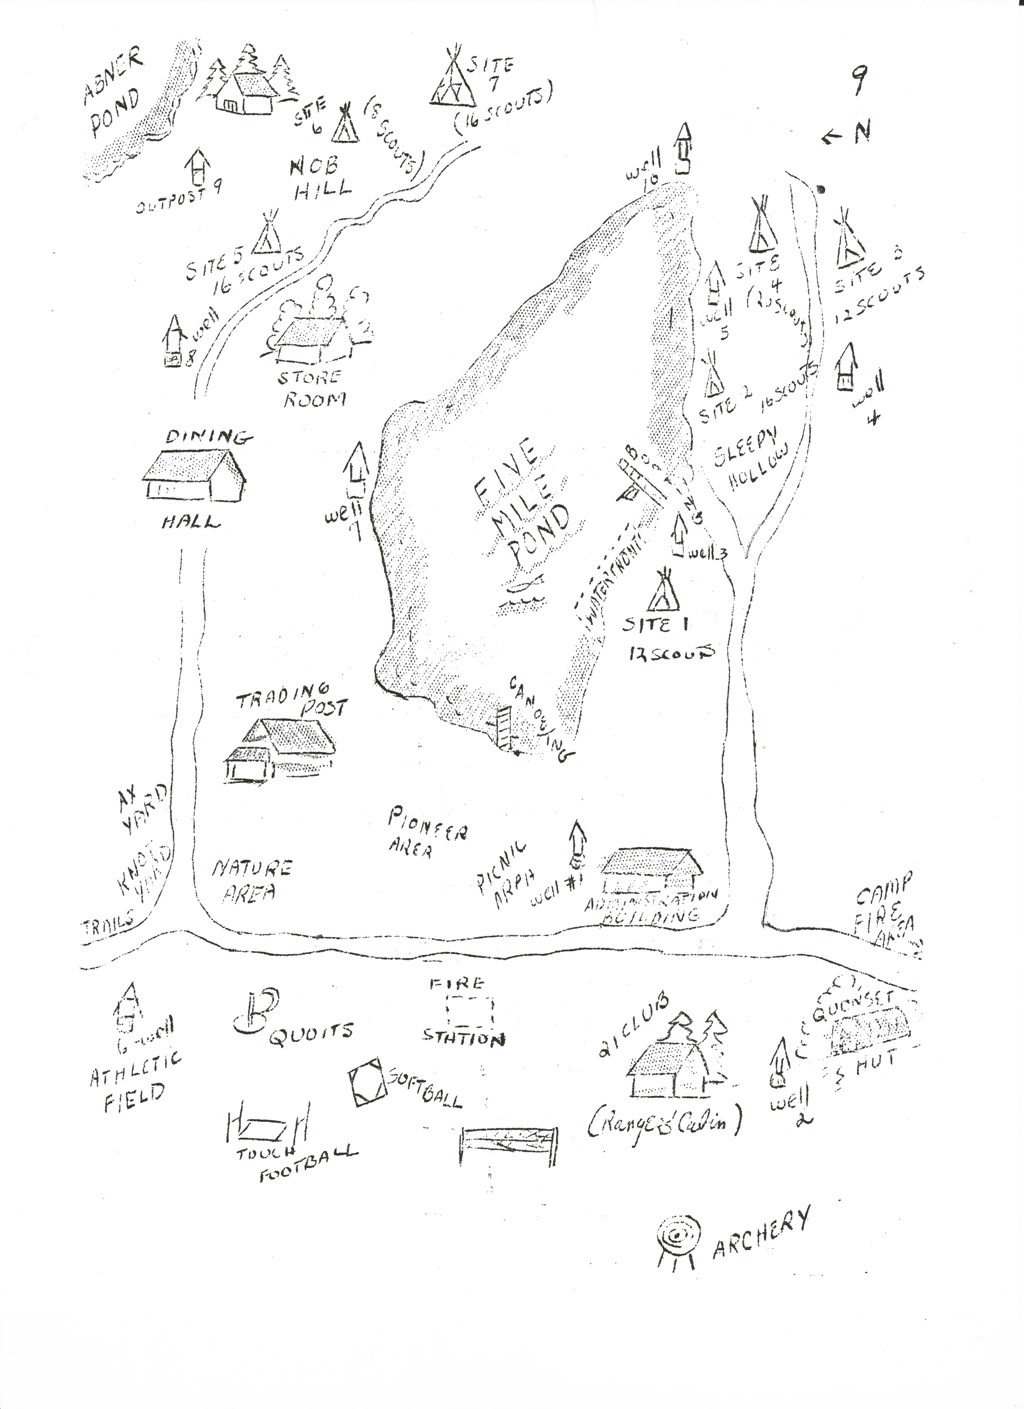 9
← N
ABNER
POND
SITE
7
(16 SCOUTS)
SITE
6
(8 SCOUTS)
NOB
HILL
OUTPOST 9
well
10
SITE 5
16 SCOUTS
SITE
4
SITE 3
12 SCOUTS
well
8
well
5
STORE
ROOM
SITE 2
16 SCOUTS
well
4
SLEEPY
HOLLOW
DINING
HALL
well
7
FIVE
MILE
POND
WATERFRONT
well 3
SITE 1
12 SCOUTS
CANOEING
TRADING
POST
AX
YARD
KNOT
YARD
TRAILS
NATURE
AREA
PIONEER
AREA
PICNIC
AREA
well #1
ADMINISTRATION
BUILDING
CAMP
FIRE
AREA
6-well
ATHLETIC
FIELD
QUOITS
FIRE
STATION
SOFTBALL
TOUCH
FOOTBALL
21 CLUB
(Rangers' Cabin)
well
2
QUONSET
HUT
ARCHERY